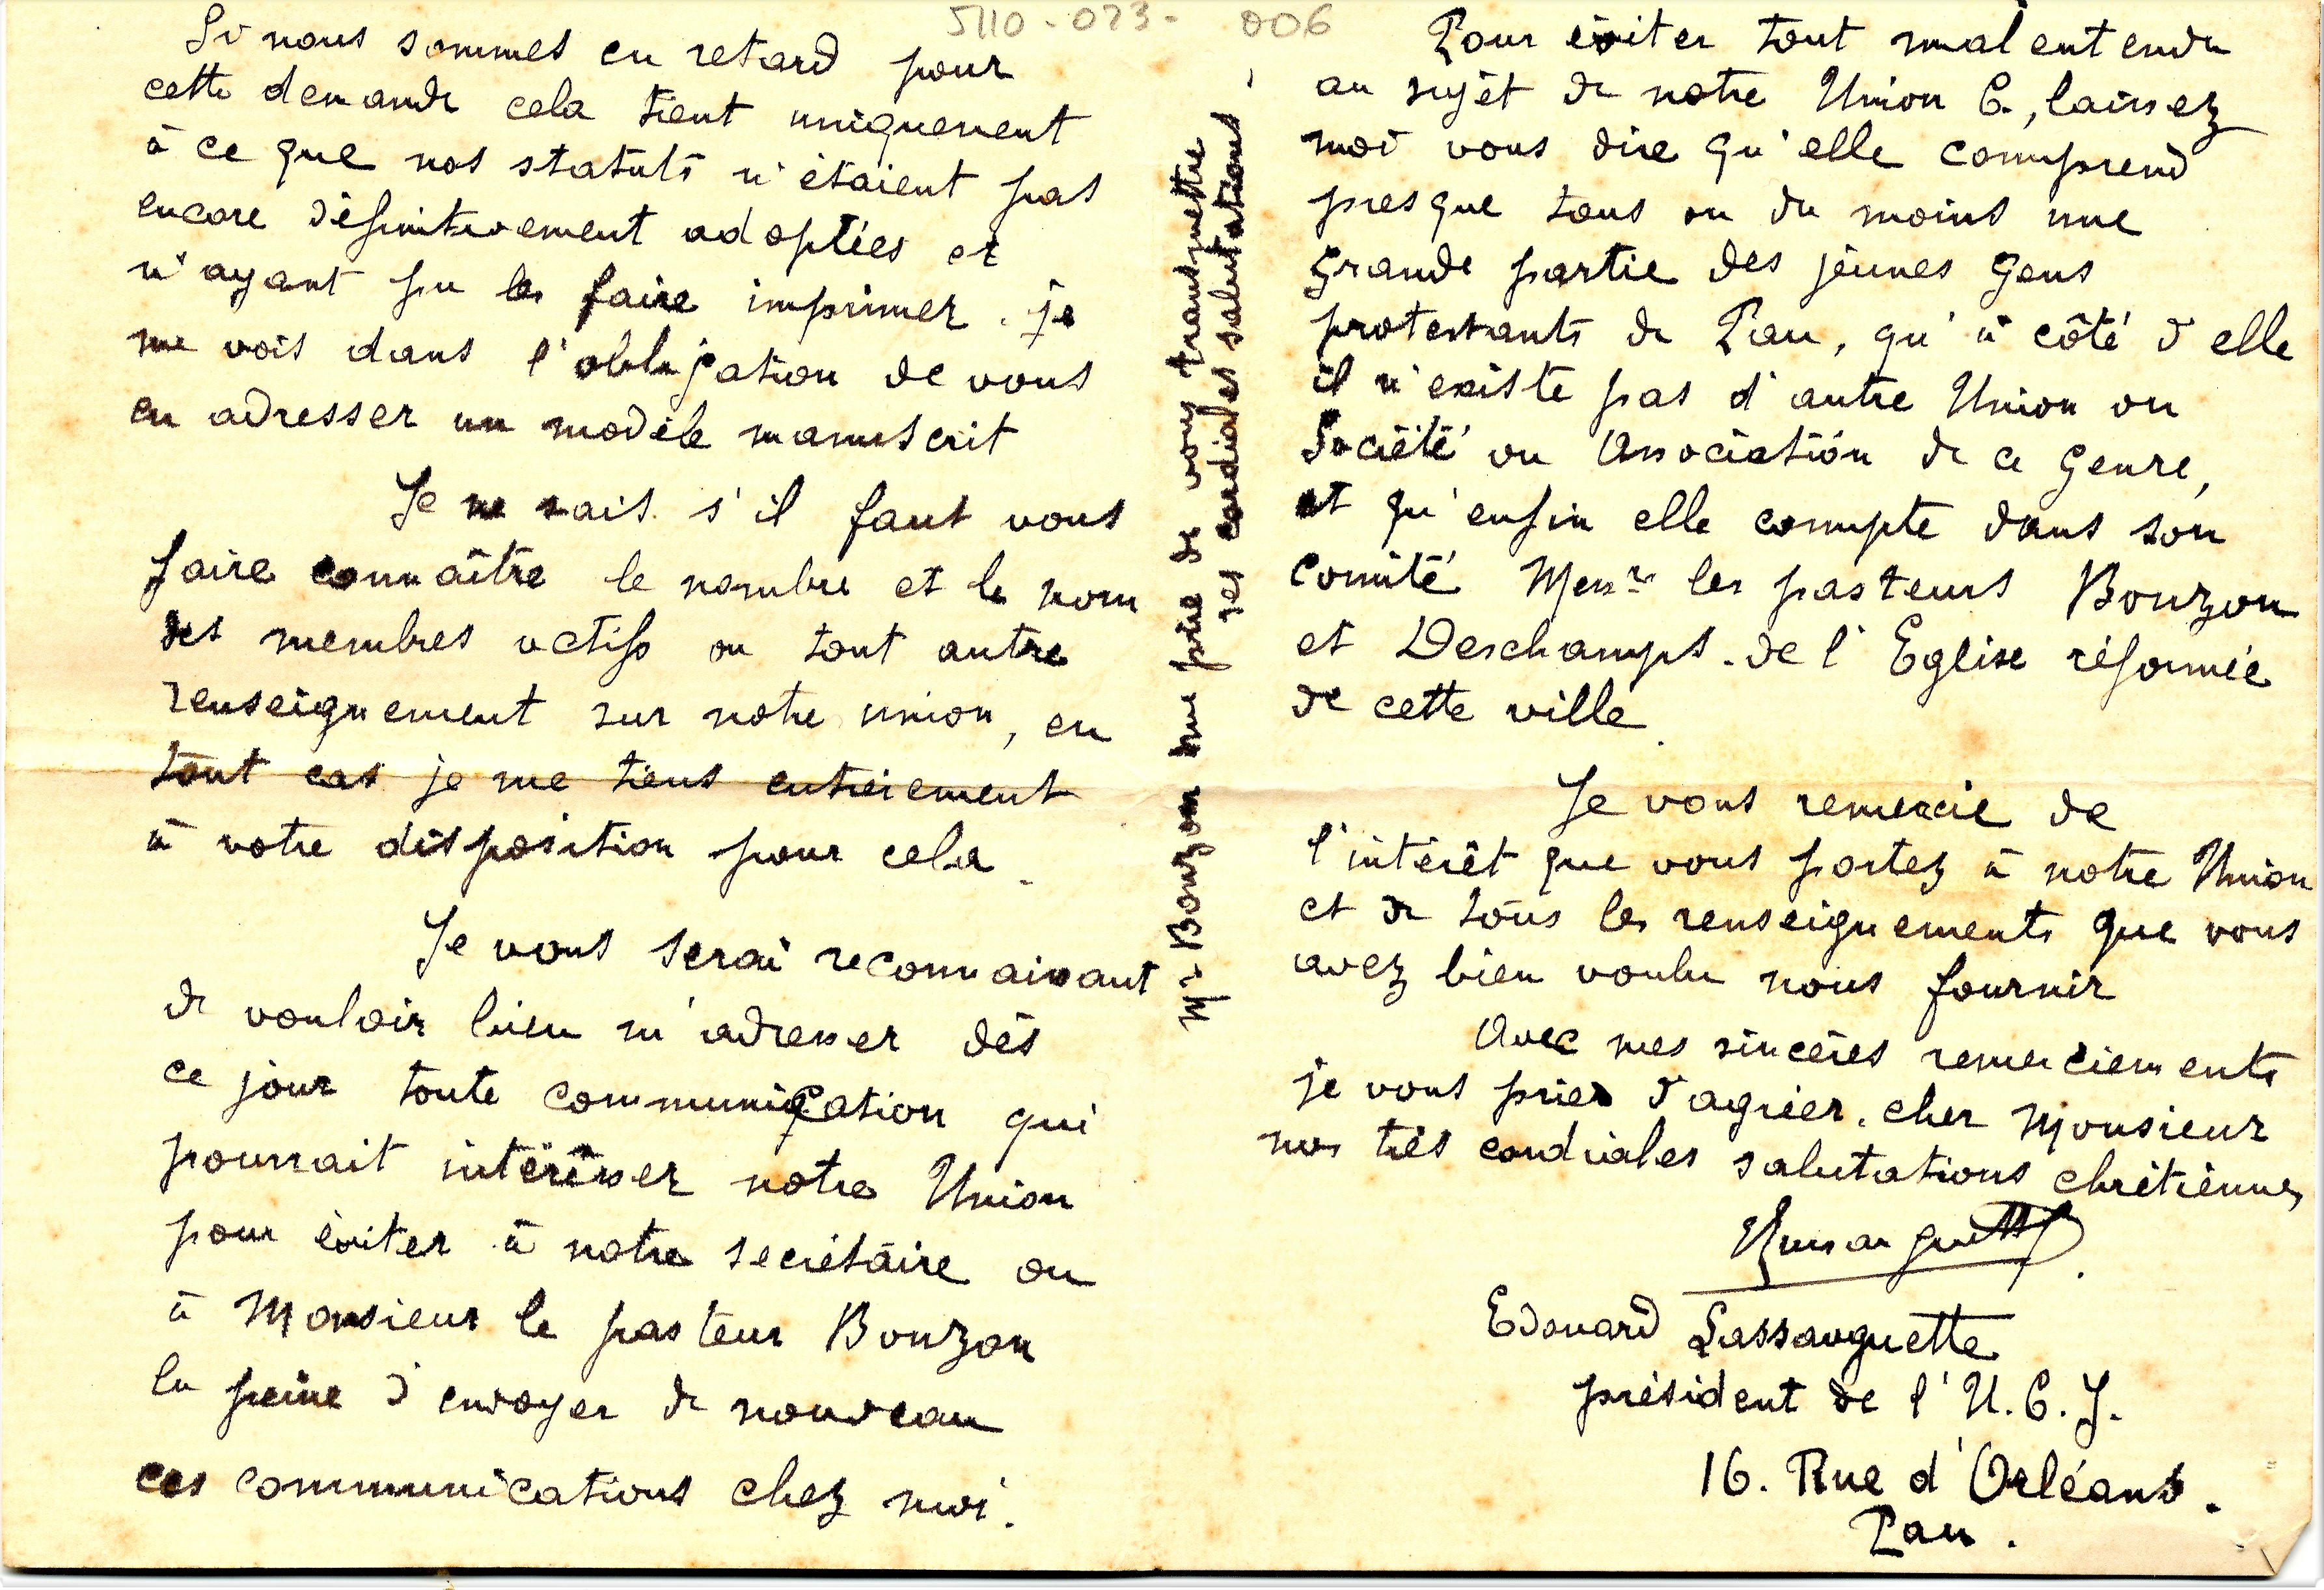 5110-023-006
Si nous sommes en retard pour
cette demande cela tient uniquement
à ce que nos statuts n'étaient pas
encore définitivement adoptées et
n'ayant pu les faire imprimer. je
me vois dans l'obligation de vous
en adresser un modèle manuscrit
Je ne sais s'il faut vous
faire connaître le nombre et le nom
des membres actifs ou tout autre
renseignement sur notre union, en
tout cas je me tiens entièrement
à votre disposition pour cela.
Je vous serai reconnaissant
de vouloir bien m'adresser dès
ce jour toute communication qui
pourrait intéresser notre Union
pour éviter à notre secrétaire ou
à Monsieur le pasteur Bonzon
la peine d'envoyer de nouveau
ces communications chez moi.
Mr Bonzon me prie de vous transmettre
ses cordiales salutations
Pour éviter tout malentendu
au sujet de notre Union C., laissez
moi vous dire qu'elle comprend
presque tous ou du moins une
grande partie des jeunes gens
protestants de Pau, qu'à côté d'elle
il n'existe pas d'autre Union ou
Société ou Association de ce genre,
et qu'enfin elle compte dans son
comité Messrs les pasteurs Bonzon
et Deschamps. de l'Eglise réformée
de cette ville.
Je vous remercie de
l'intérêt que vous portez à notre Union
et de tous les renseignements que vous
avez bien voulu nous fournir
Avec mes sincères remerciements
je vous prie d'agréer. cher Monsieur
nos très cordiales salutations chrétiennes
Edouard Lassauguette
président de l'U.C.J.
16. Rue d'Orléans.
Pau.